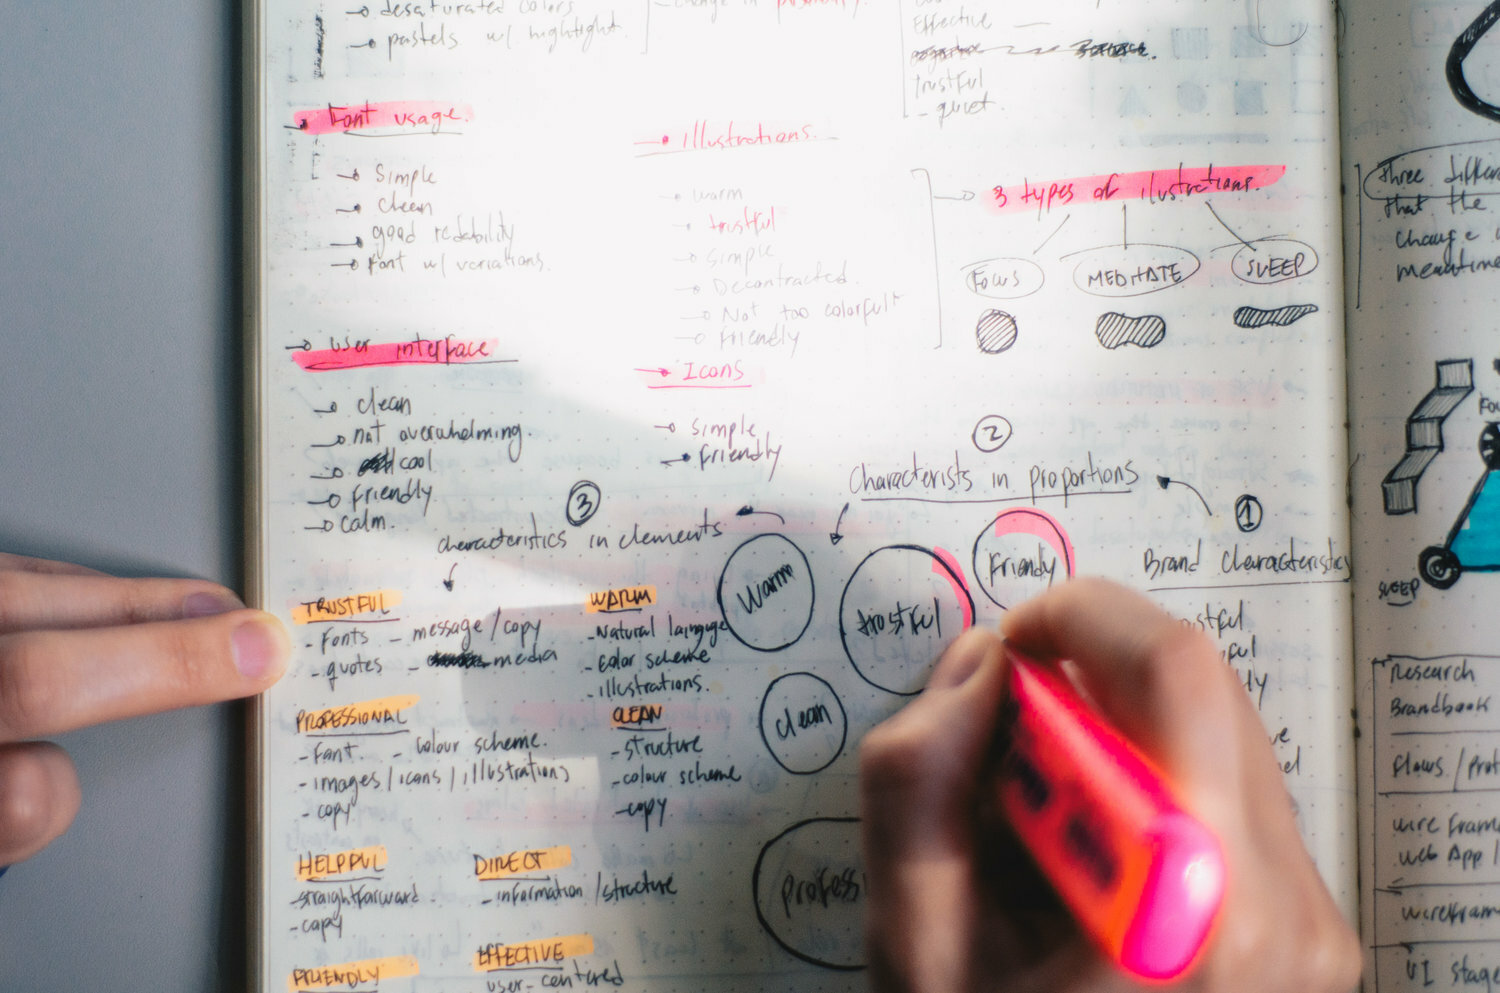 desaturated colors
pastels w/ hightlight.
Effective
trustful
- quiet.
Font usage.
Simple
clean
good redability
Font w/ variations.
illustrations.
warm
trustful
Simple
Decontracted.
Not too colorful
Friendly
3 types of ilustrations.
Focus
MEDITATE
SLEEP
user interface
clean
not overwhelming.
cool
Friendly
calm.
Icons
simple
Friendly
2
Characterists in proportions
1
Brand Characteristics
3
characteristics in elements
Warm
trostful
Friendly
clean
professi
TRUSTFUL
- Fonts - message/copy
- quotes - media
WARM
- Natural
- Color scheme
- illustrations.
PROFESSIONAL
- Font. - colour scheme.
- images/icons/illustrations
- copy.
CLEAN
- structure
- colour scheme
- copy
HELPFUL
- straightforward
- copy
DIRECT
- information/structure
FRIENDLY
EFFECTIVE
user-centered
three differ
that the
change
meantime
SLEEP
Research
Brandbook
Flows/Prot
wire Fram
web App/
wireFram
UI stage